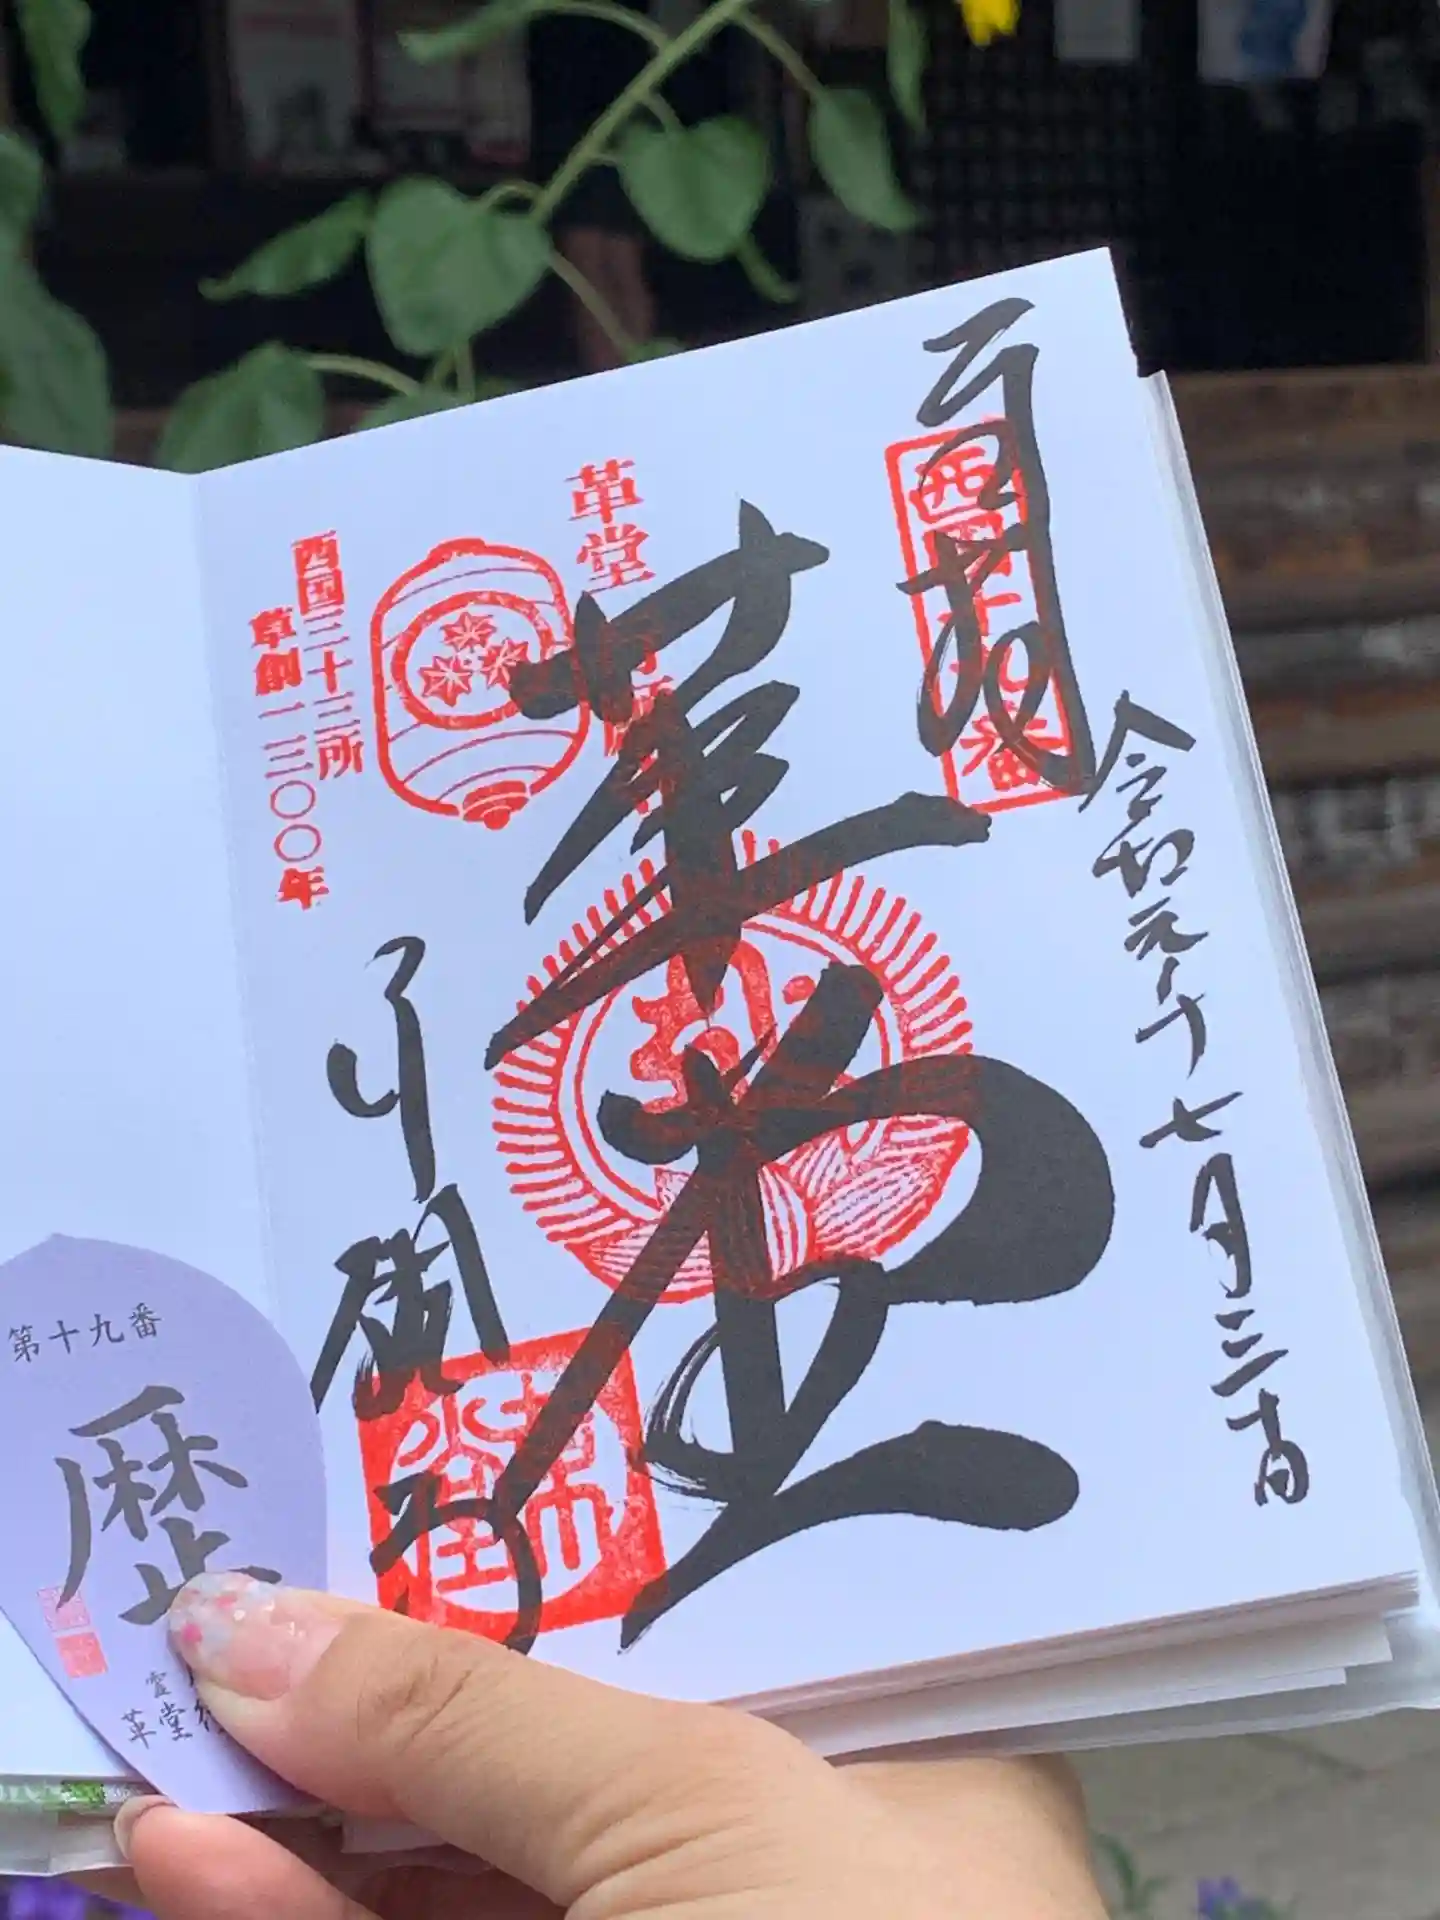 奉拝
西国十九番
令和元年七月三十日
革堂
革堂
行願寺
西国三十三所
草創一三〇〇年
第十九番
歴
革堂